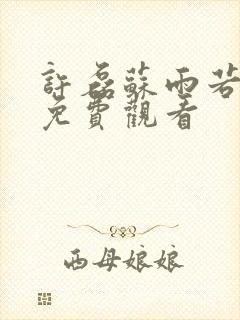 許磊蘇雨若
免費觀看
西母娘娘